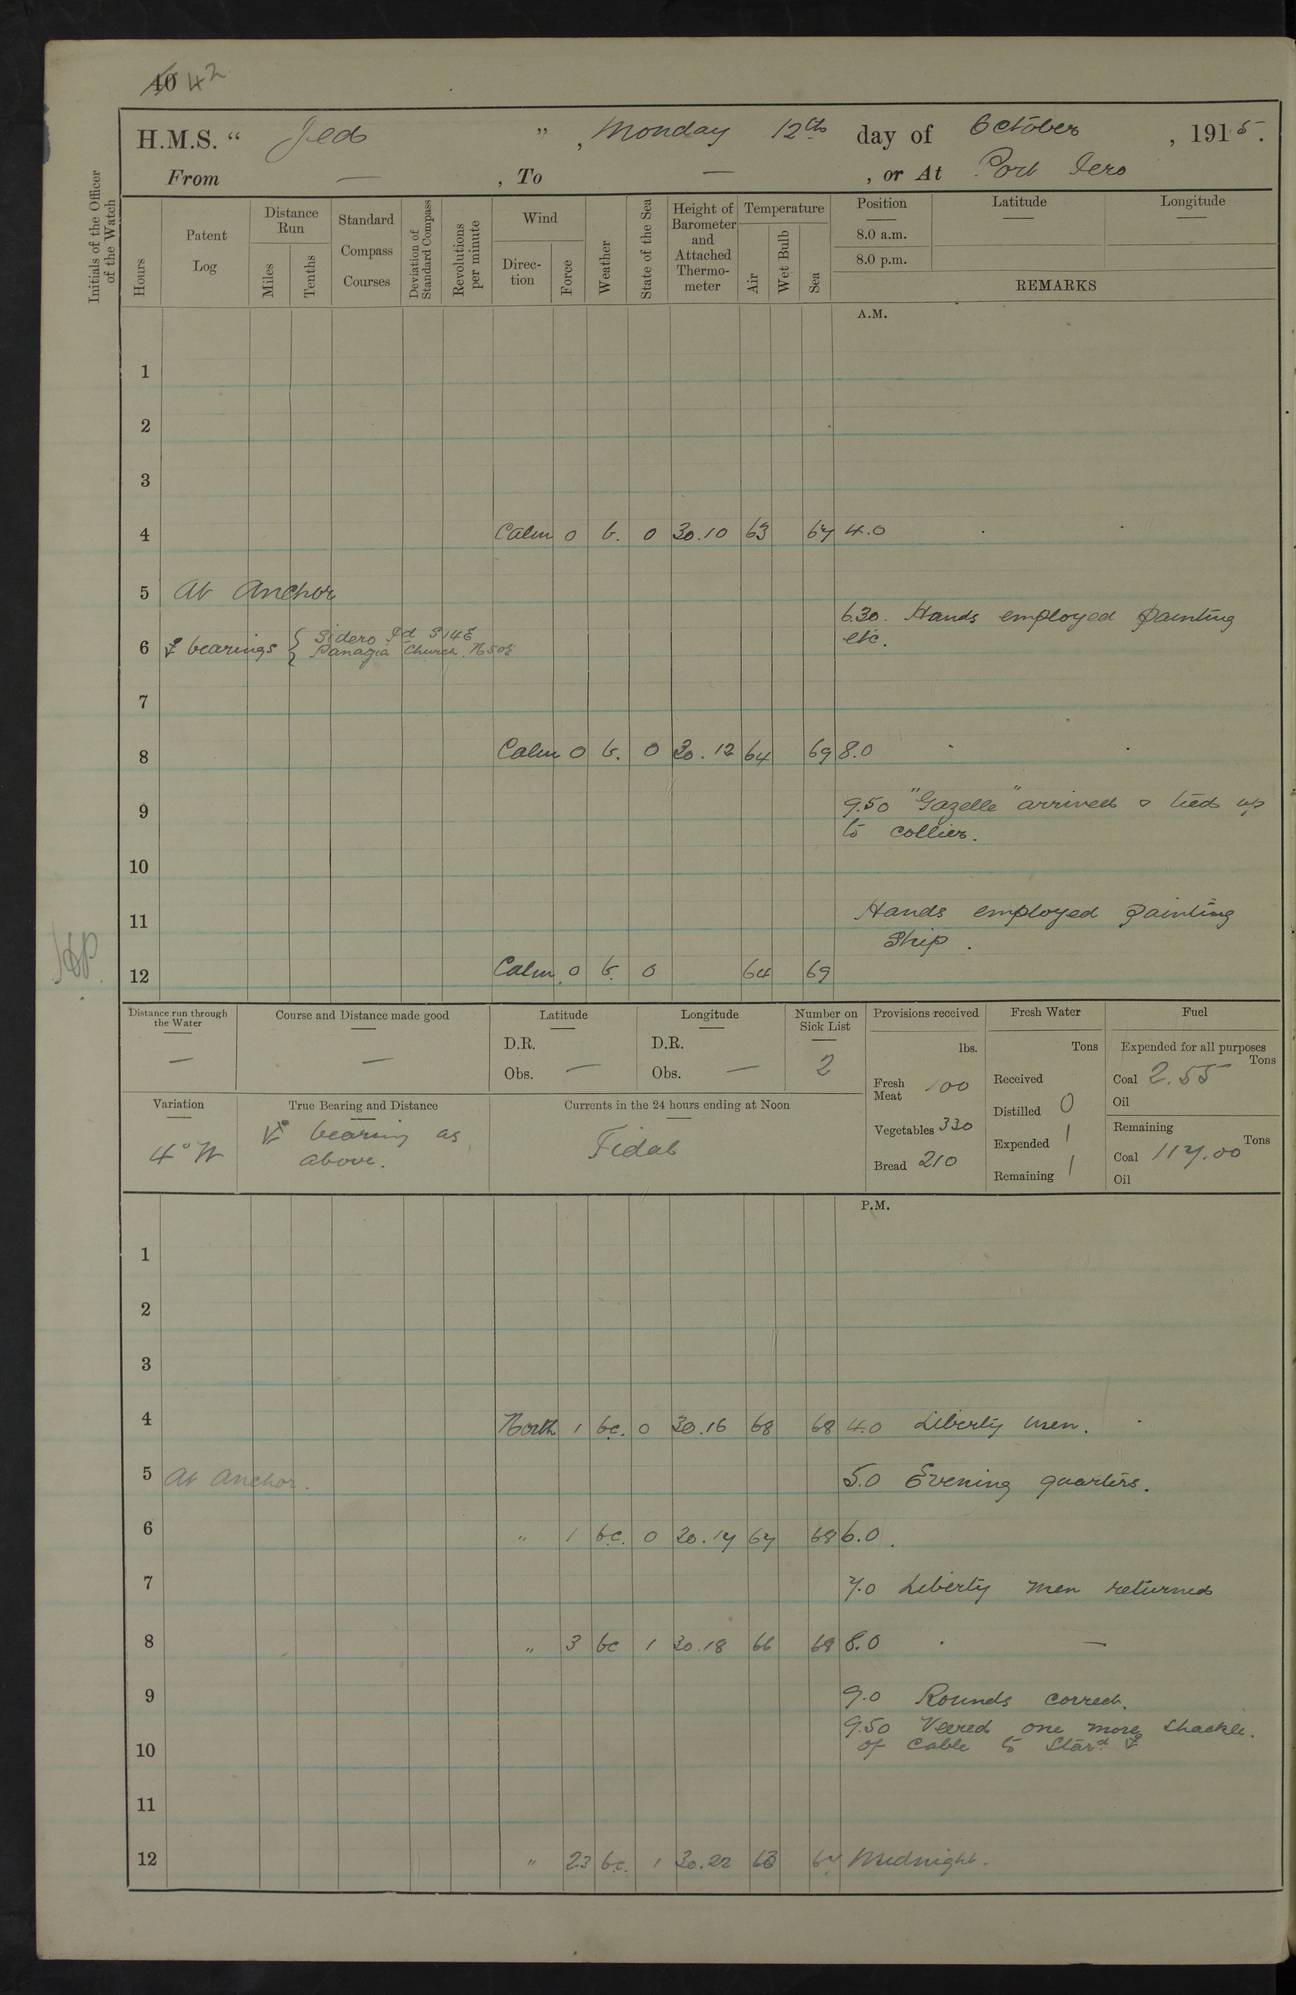 40 42
H.M.S. “ Jed ”, Monday 12th day of October, 1915.
From — , To — , or At Port Iero
Initials of the Officer of the Watch
Hours
Patent Log
Distance Run
Miles
Tenths
Standard Compass Courses
Deviation of Standard Compass
Revolutions per minute
Wind
Direction
Force
Weather
State of the Sea
Height of Barometer and Attached Thermometer
Temperature
Air
Wet Bulb
Sea
Position
8.0 a.m.
8.0 p.m.
Latitude
Longitude
REMARKS
A.M.
1
2
3
4 Calm 0 b. 0 30.10 63 67 4.0
5 At Anchor
6.30. Hands employed painting
etc.
6 bearings { Sidero Id S14E
Panagia Church N50E
7
8 Calm 0 b. 0 30.12 64 69 8.0
9 9.50 "Gazelle" arrived & tied up
to collier.
10
11 Hands employed painting
Ship.
12 Calm 0 b. 0 64 69
Distance run through the Water
—
Course and Distance made good
—
Latitude
D.R.
Obs. —
Longitude
D.R.
Obs. —
Number on Sick List
2
Provisions received
lbs.
Fresh Meat 100
Vegetables 330
Bread 210
Fresh Water
Tons
Received
Distilled 0
Expended 1
Remaining 1
Fuel
Expended for all purposes
Tons
Coal 2.55
Oil
Remaining
Tons
Coal 117.00
Oil
Variation
4° W
True Bearing and Distance
bearing as
above.
Currents in the 24 hours ending at Noon
Tidal
P.M.
1
2
3
4 North 1 bc. 0 30.16 68 68 4.0 Liberty men.
5 At Anchor. 5.0 Evening quarters.
6 " 1 bc. 0 30.17 67 68 6.0
7 7.0 Liberty men returned
8 " 3 bc 1 30.18 66 68 8.0 —
9 9.0 Rounds correct.
9.50 Veered one more shackle
10 of Cable to Stard
11
12 " 23 bc. 1 30.22 63 67 Midnight.